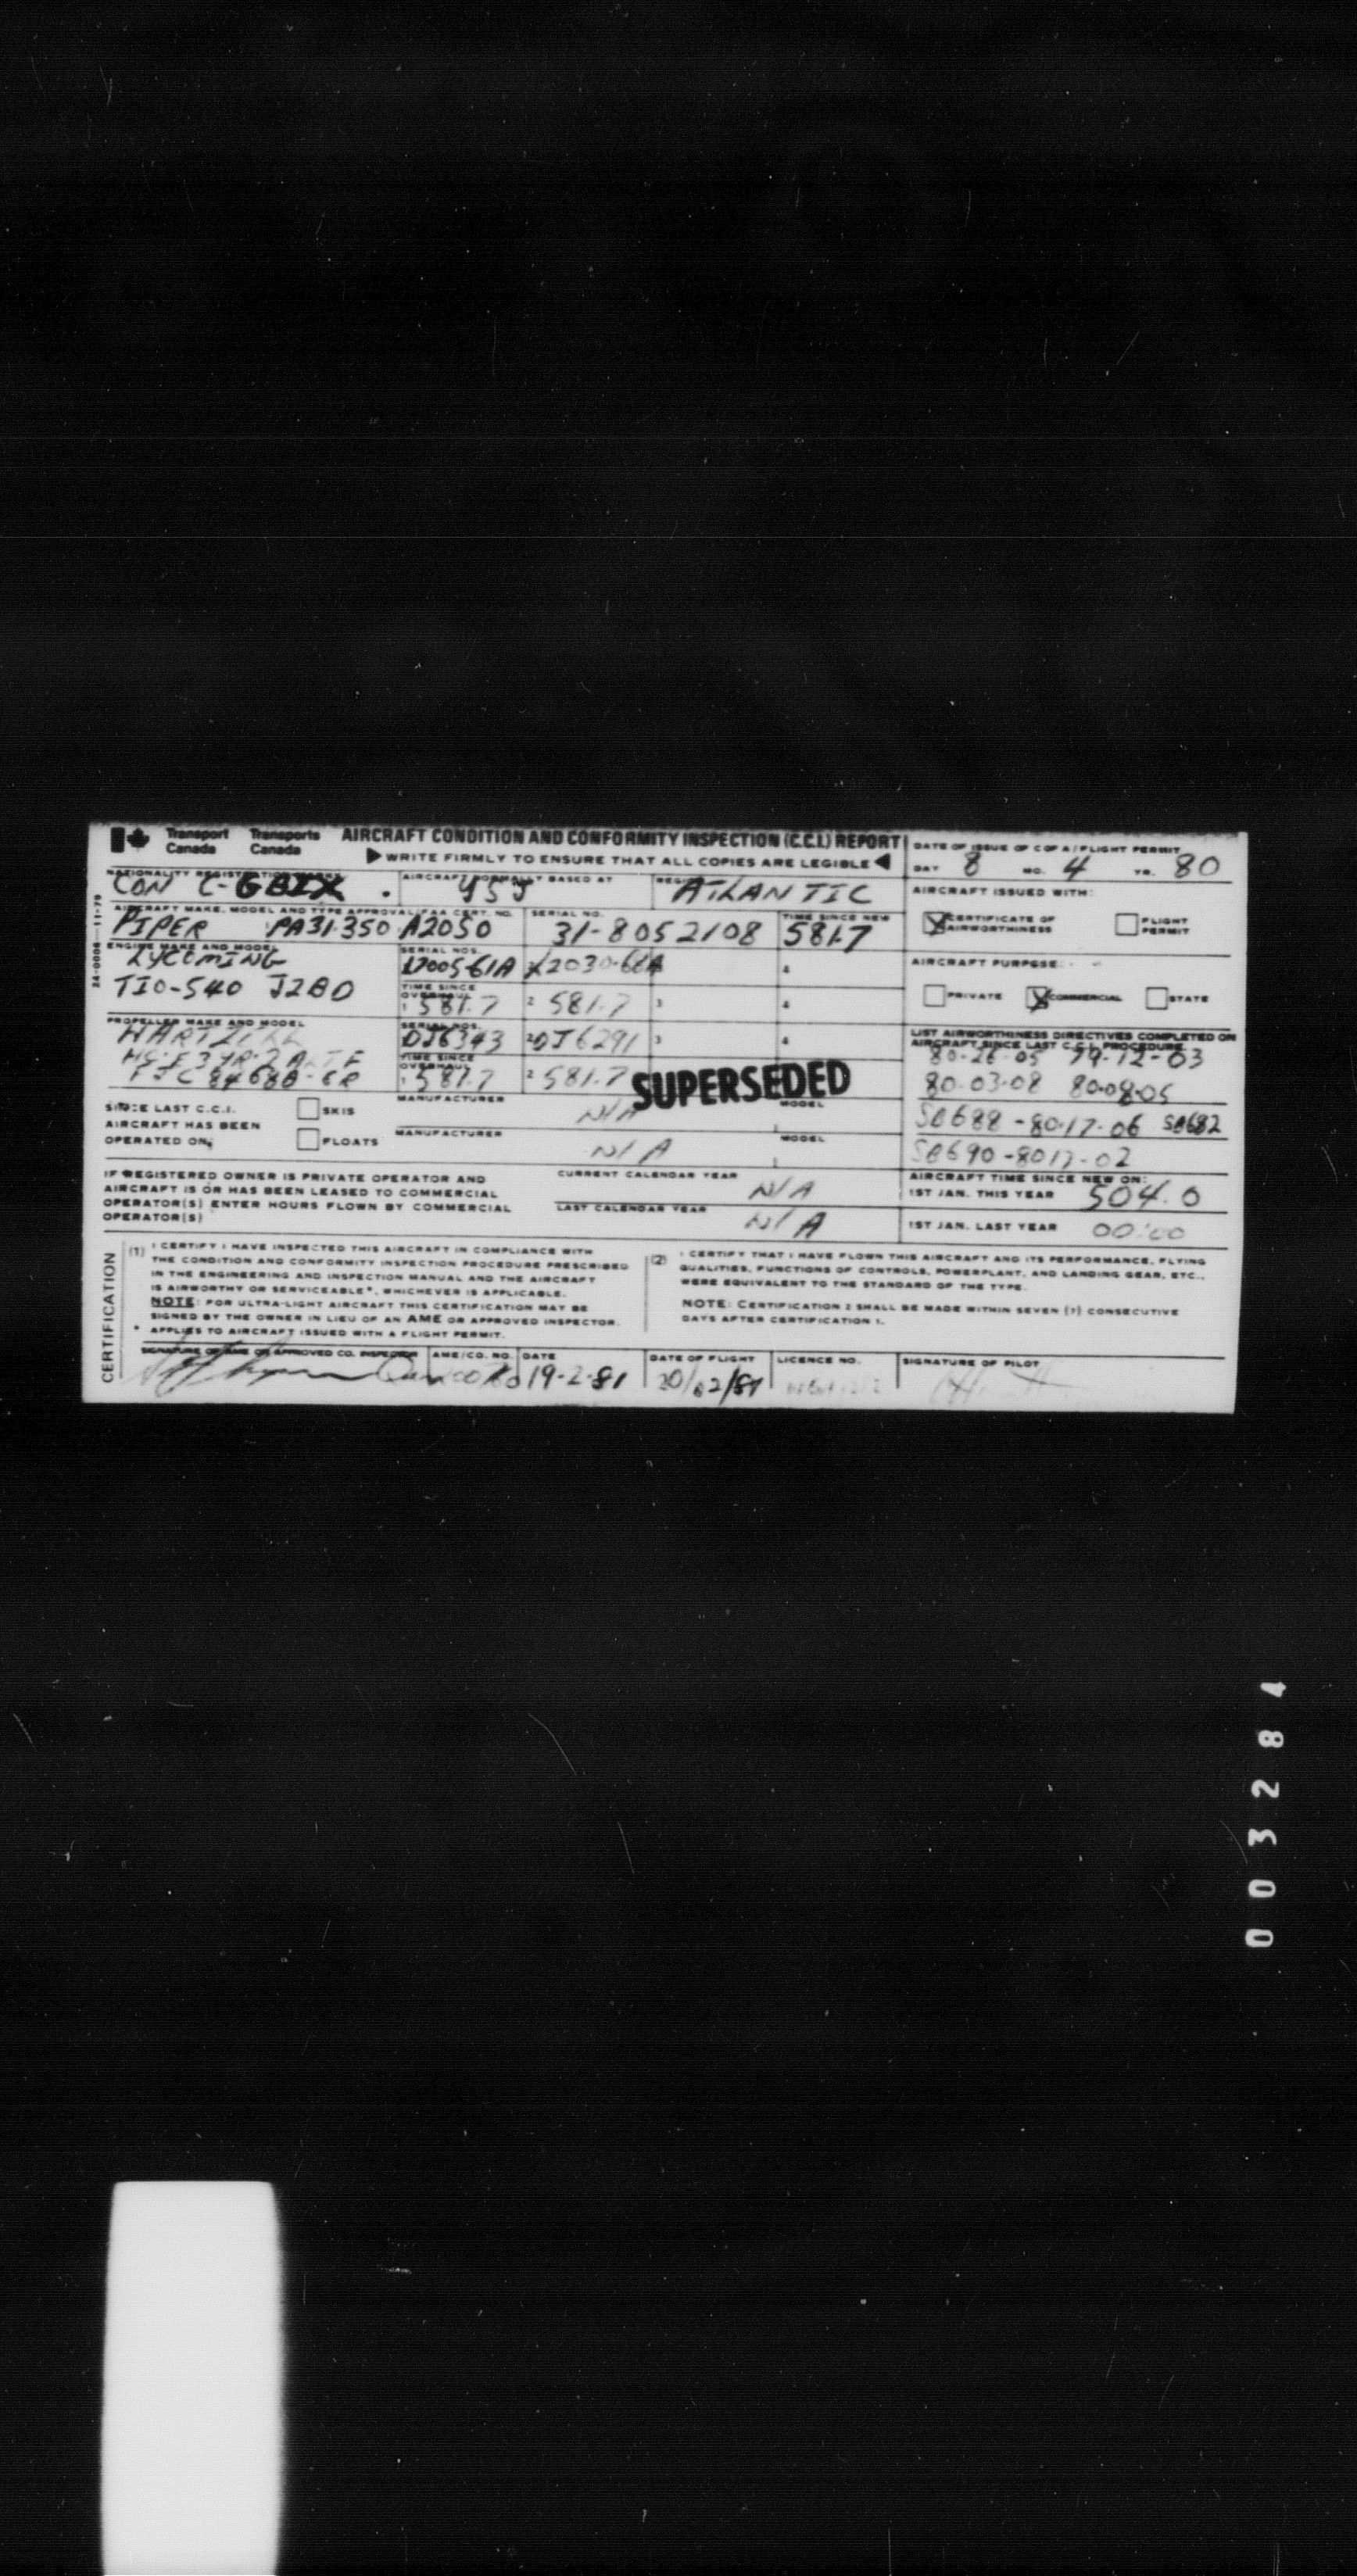 Transport Canada Transports Canada AIRCRAFT CONDITION AND CONFORMITY INSPECTION (C.C.I.) REPORT
WRITE FIRMLY TO ENSURE THAT ALL COPIES ARE LEGIBLE
DATE OF ISSUE OF C OF A/FLIGHT PERMIT
DAY 8 MO. 4 YR. 80
AIRCRAFT NORMALLY BASED AT
CON C-GBZX YSJ ATLANTIC
AIRCRAFT ISSUED WITH:
CERTIFICATE OF AIRWORTHINESS FLIGHT PERMIT
AIRCRAFT MAKE, MODEL AND TYPE APPROVAL/FAA CERT. NO. SERIAL NO. TIME SINCE NEW
PIPER PA31-350 A2050 31-8052108 581.7
ENGINE MAKE AND MODEL SERIAL NOS.
LYCOMING 4
TIO-540 J2BD
TIME SINCE OVERHAUL
1 581.7 2 581.7 3 4
AIRCRAFT PURPOSE:
PRIVATE COMMERCIAL STATE
PROPELLER MAKE AND MODEL SERIAL NOS.
HARTZELL DJ6343 2 DJ6291 3 4
TIME SINCE OVERHAUL
1 581.7 2 581.7
SUPERSEDED
LIST AIRWORTHINESS DIRECTIVES COMPLETED ON
AIRCRAFT SINCE LAST C.C.I. PROCEDURE
80-26-05 79-12-03
80-03-08 80-08-05
SB688 -80-17-06 SB682
SB690-8017-02
SINCE LAST C.C.I.
AIRCRAFT HAS BEEN
OPERATED ON:
SKIS
FLOATS
MANUFACTURER N/A MODEL
MANUFACTURER N/A MODEL
IF REGISTERED OWNER IS PRIVATE OPERATOR AND
AIRCRAFT IS OR HAS BEEN LEASED TO COMMERCIAL
OPERATOR(S) ENTER HOURS FLOWN BY COMMERCIAL
OPERATOR(S)
CURRENT CALENDAR YEAR N/A
LAST CALENDAR YEAR N/A
AIRCRAFT TIME SINCE NEW ON:
1ST JAN. THIS YEAR 504.0
1ST JAN. LAST YEAR 00:00
CERTIFICATION
(1) I CERTIFY I HAVE INSPECTED THIS AIRCRAFT IN COMPLIANCE WITH
THE CONDITION AND CONFORMITY INSPECTION PROCEDURE PRESCRIBED
IN THE ENGINEERING AND INSPECTION MANUAL AND THE AIRCRAFT
IS AIRWORTHY OR SERVICEABLE*, WHICHEVER IS APPLICABLE.
NOTE: FOR ULTRA-LIGHT AIRCRAFT THIS CERTIFICATION MAY BE
SIGNED BY THE OWNER IN LIEU OF AN AME OR APPROVED INSPECTOR.
* APPLIES TO AIRCRAFT ISSUED WITH A FLIGHT PERMIT.
(2) I CERTIFY THAT I HAVE FLOWN THIS AIRCRAFT AND ITS PERFORMANCE, FLYING
QUALITIES, FUNCTIONS OF CONTROLS, POWERPLANT, AND LANDING GEAR, ETC.,
WERE EQUIVALENT TO THE STANDARD OF THE TYPE.
NOTE: CERTIFICATION 2 SHALL BE MADE WITHIN SEVEN (7) CONSECUTIVE
DAYS AFTER CERTIFICATION 1.
SIGNATURE OF AME OR APPROVED CO. INSPECTOR AME/CO. NO. DATE DATE OF FLIGHT LICENCE NO. SIGNATURE OF PILOT
19-2-81 20/02/81
24-0006 11-79
003284